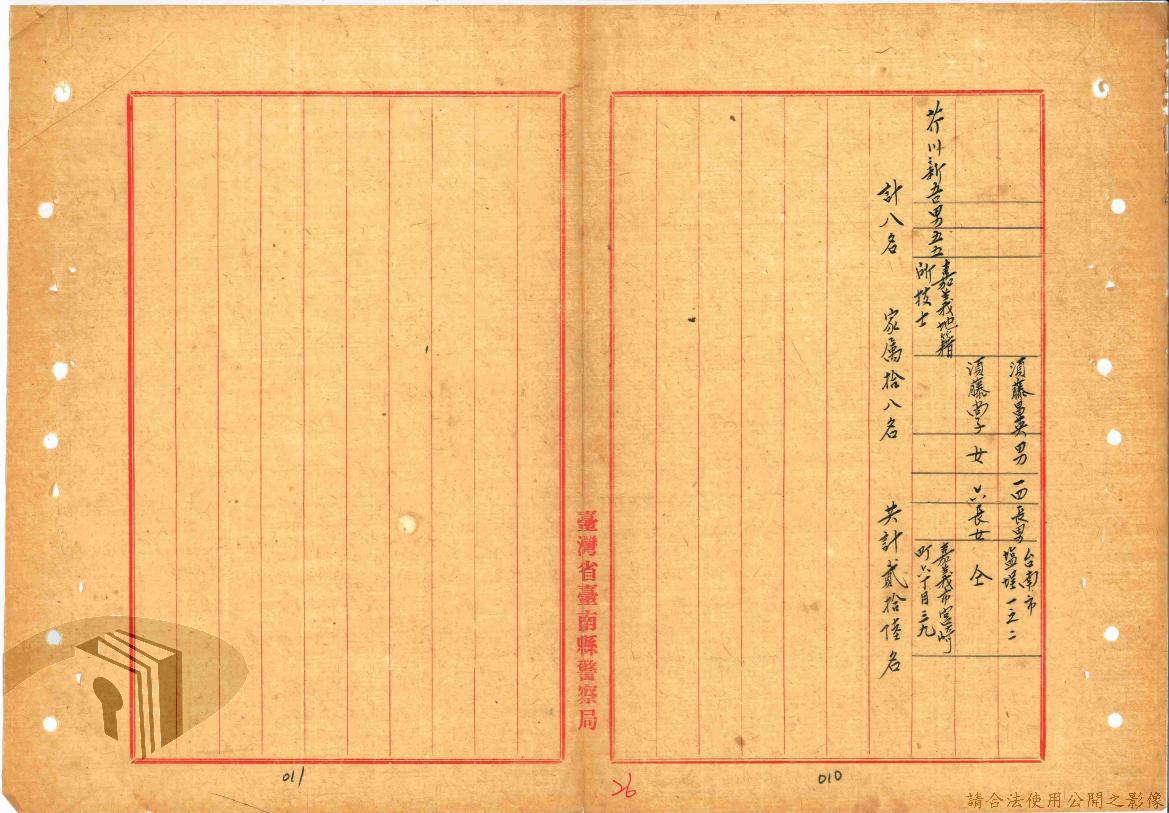 須藤昌英 男 一四 長男 台南市
塩埕一之二
須藤尚子 女 六 長女 仝
芥川新吾 男 五五 嘉義地籍
所技士 嘉義市宮崎
町六丁目三九
計八名 家屬拾八名 共計貳拾陸名
臺灣省臺南縣警察局
010
26
011
請合法使用公開之影像